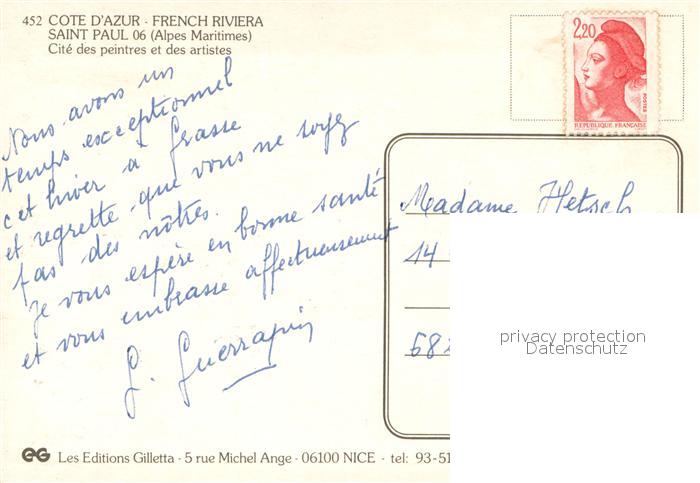 452 COTE D'AZUR - FRENCH RIVIERA
SAINT PAUL 06 (Alpes Maritimes)
Cité des peintres et des artistes
2,20
POSTES
REPUBLIQUE FRANÇAISE
Nous avons un
temps exceptionnel
cet hiver à Grasse
et regrette que vous ne soyez
pas des nôtres.
Je vous espère en bonne santé
et vous embrasse affectueusement
G. Guerrapin
Madame Hetsch
14
68
privacy protection
Datenschutz
EG Les Editions Gilletta - 5 rue Michel Ange - 06100 NICE - tel: 93-51